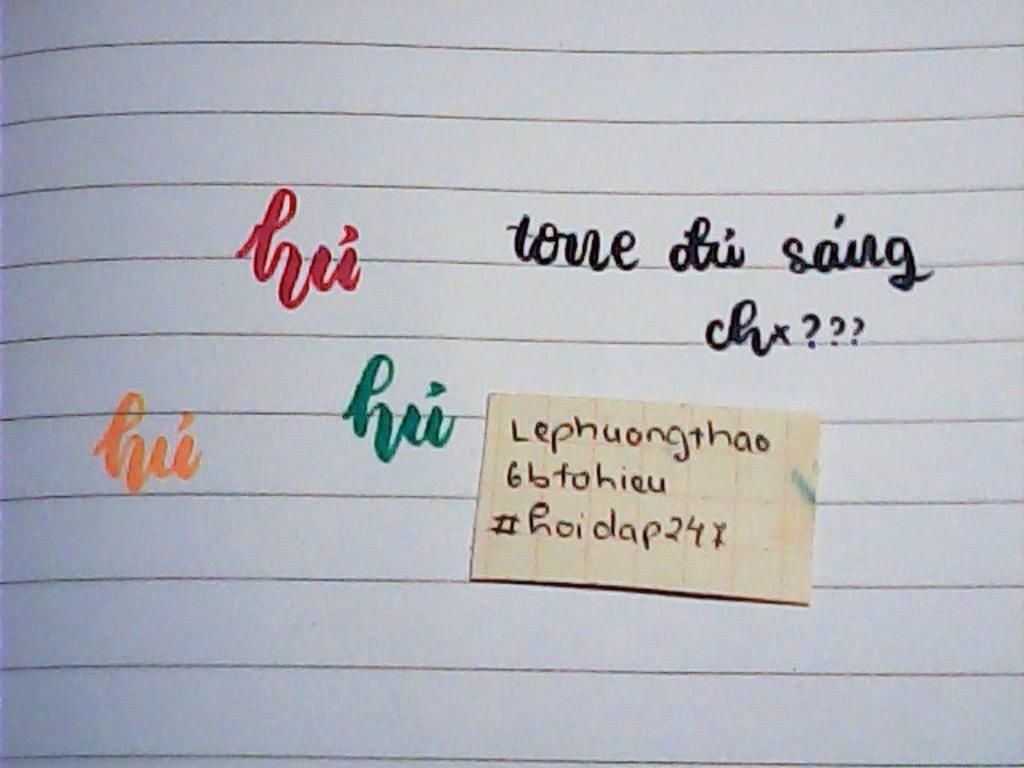 hi
tone đủ sáng
chx???
hi
hi
Lephuongthao
6btohieu
#hoidap247